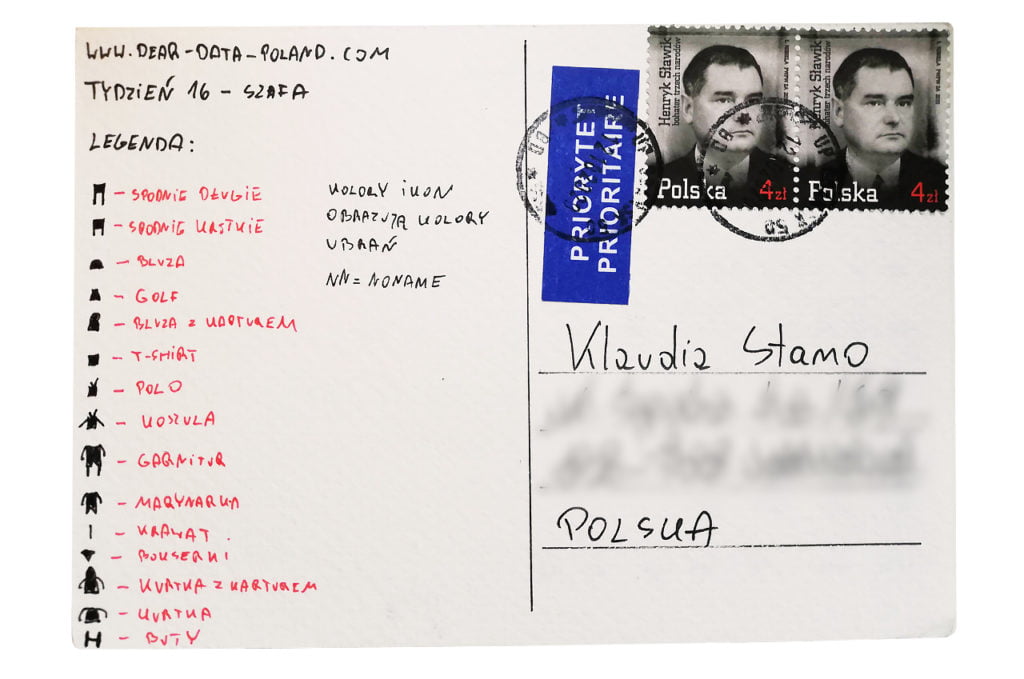 WWW.DEAR-DATA-POLAND.COM
TYDZIEŃ 16 - SZAFA
LEGENDA:
- SPODNIE DŁUGIE
- SPODNIE KRÓTKIE
- BLUZA
- GOLF
- BLUZA Z KAPTUREM
- T-SHIRT
- POLO
- KOSZULA
- GARNITUR
- MARYNARKA
- KRAWAT
- BOKSERKI
- KURTKA Z KAPTUREM
- KURTKA
- BUTY
KOLORY IKON
OBRAZUJĄ KOLORY
UBRAŃ
NN = NONAME
PRIORYTET
PRIORITAIRE
Henryk Sławik
bohater trzech narodów
Polska 4zł
Henryk Sławik
bohater trzech narodów
Polska 4zł
Klaudia Stamo
POLSKA